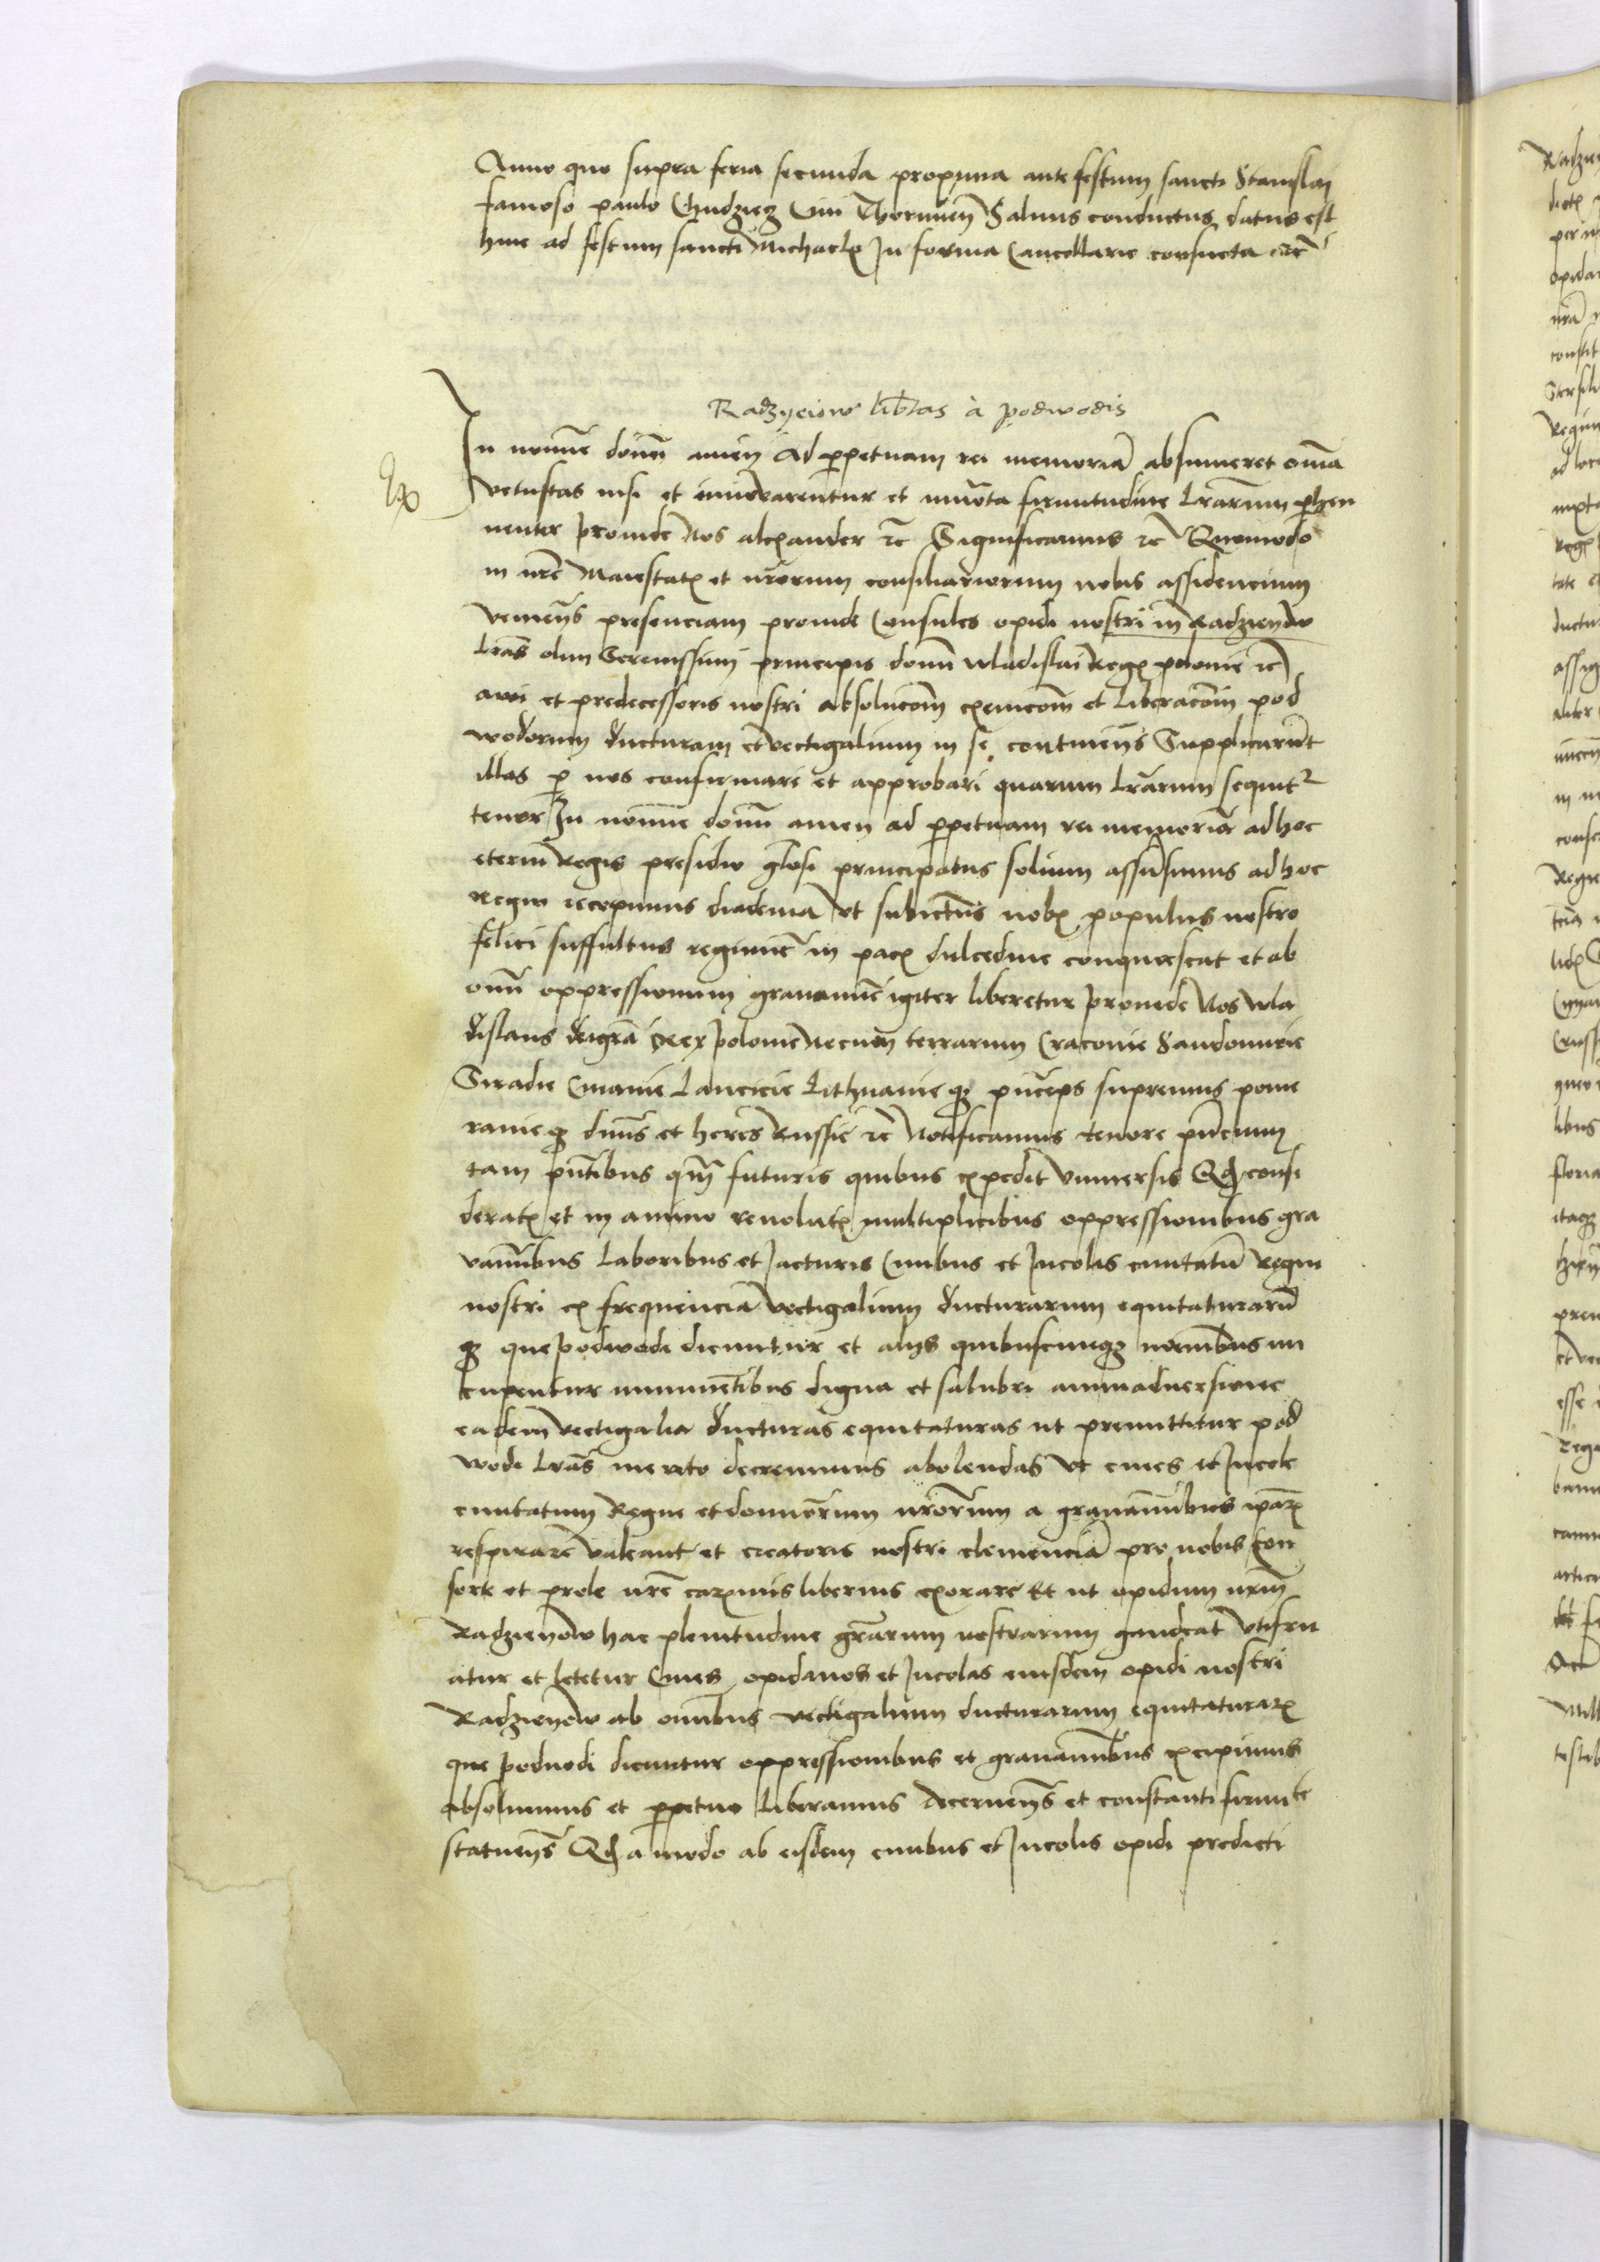 Anno quo supra feria secunda proxima ante festum sancti Stanislai
famoso paulo Chudzicz Civi Thorunen Salvus conductus datus est
hinc ad festum sancti Michaelis In forma Cancellarie consueta etc
Radzyeiow lib̃tas à podwodis
In nomĩe domĩ amen Ad ꝑpetuam rei memoriã absumeret om̃ia
vetustas nisi et innovarentur et munita firmitudine l̃rarum ꝑhen
nentur proinde Nos alexander etc Significamus etc Quomodo
in nrẽ Maiestatis et nr̃orum consiliariorum nobis assidencium
veniens presenciam provide Consules opidi nostri in Radzyeyow
l̃ras olim Serenissimi principis domĩ wladislai Regis polonie etc
avi et predecessoris nostri absolucõm exempcõm et liberacõm pod
wodarum ducturam et vectigalium in se continens Supplicarũt
illas ꝑ nos confirmari et approbari quarum l̃rarum sequitur
tenor In nomĩe domĩ amen ad ꝑpetuam rei memoriã ad hoc
eterni Regis presidio glõsi principatus solium assũsimus ad hoc
Regni recepimus diadema ut subiectus nobis populus nostro
felici suffultus regimĩe in pacis dulcedine conquiescat et ab
omĩ oppressionum gravamĩe igiter liberetur proinde Nos Wla
dislaus dei grã Rex polonie Necnon terrarum Cracovie Sandomirie
Siradie Cuyavie Lancicie Lithuanie qȝ prĩceps supremus pome
ranie qȝ dñus et heres Russie etc Notificamus tenore pñcium
tam pñtibus qm̃ futuris quibus expedit universis Qđ consi
deratis et in animo revolutis multiplicibus oppressionibus gra
vamĩbus laboribus et iacturis Civibus et Incolis civitatũ Regni
nostri ex frequencia vectigalium ducturarum equitaturarũ
qȝ que podwodi dicuntur et alijs quibuscunqȝ nominibus nu
cupentur imminẽtibus digna et salubri animadversione
eadem vectigalia ducturas equitaturas ut premittitur pod
wodi l̃ras merito decrevimus abolendas ut cives et Incole
civitatum Regni et domĩorum nr̃orum a gravamĩbus ipãrum
respirare valeant et creatoris nostri clemenciã pro nobis con
sorte et prole nrẽ carissimis liberius exorare Et ut opidum nrm̃
Radzieyow hac plenitudine gr̃arum nostrarum gaudeat utifru
atur et letetur Cives opidanos et Incolas eiusdem opidi nostri
Radzieyow ab omĩbus vectigalium ducturarum equitaturarum
que podvodi dicuntur oppressionibus et gravamĩbus excipimus
absolvimus et ꝑpetuo liberamus decernens et constanti firmite
statuens Qđ a modo ab eisdem civibus et Incolis opidi predicti